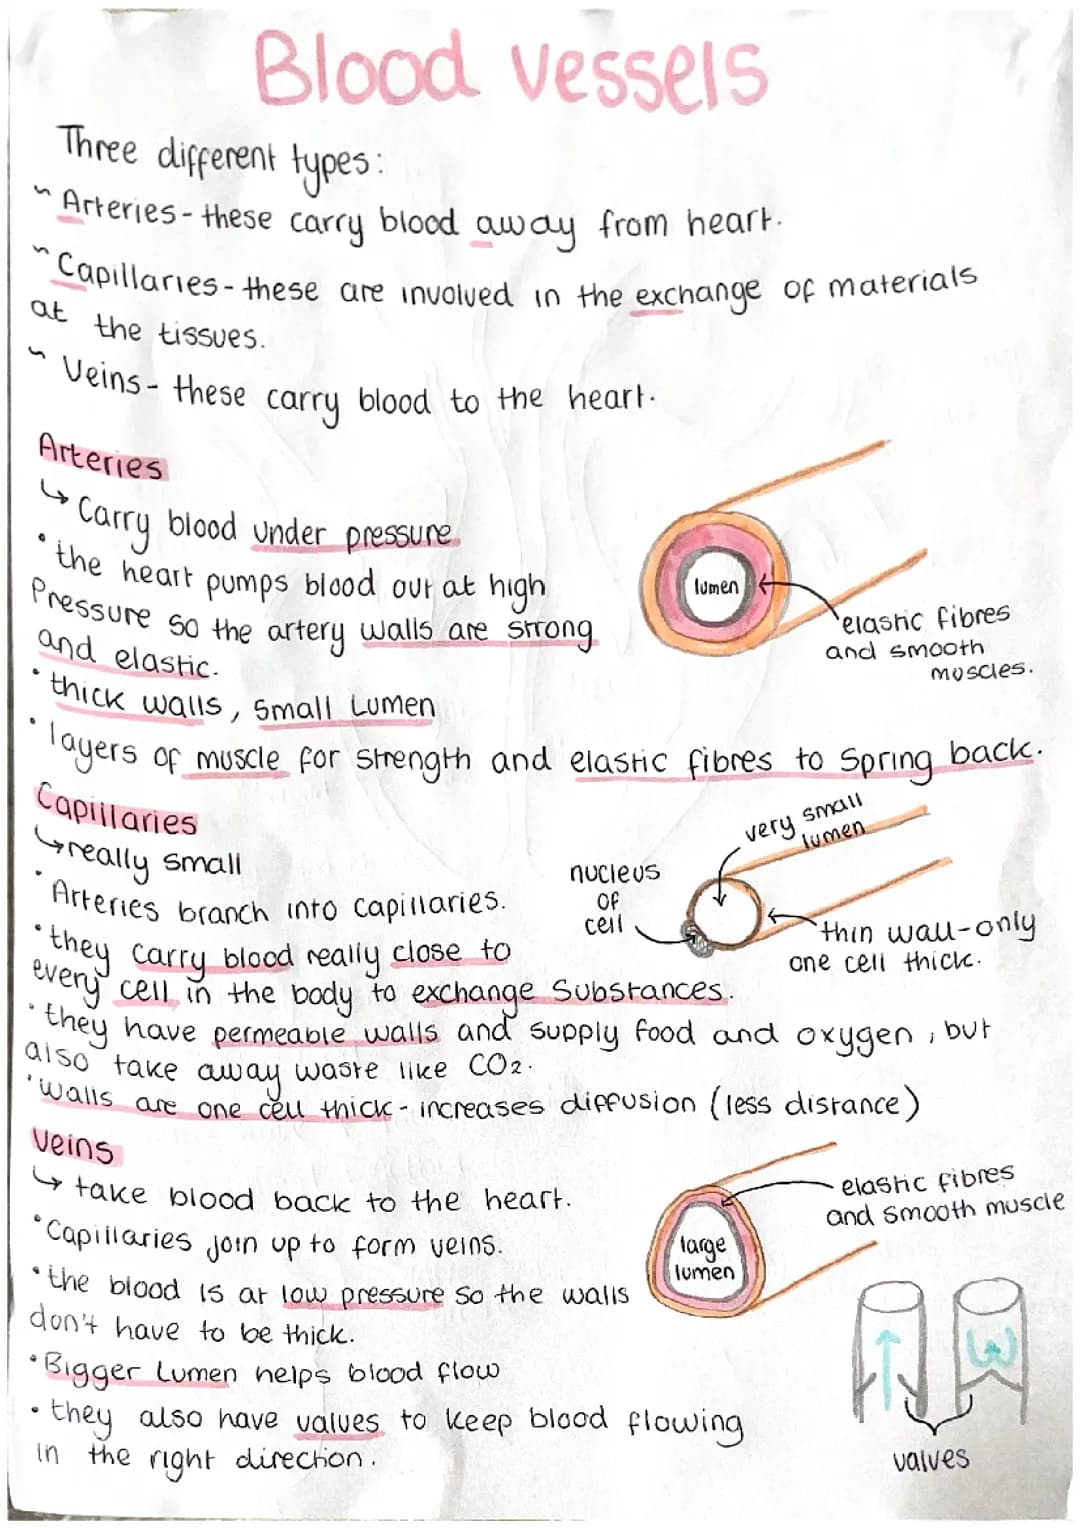 Blood vessels
Three different types:
~ Arteries - these carry blood away from heart.
~ Capillaries - these are involved in the exchange of materials
at the tissues.
~ Veins - these carry blood to the heart.
Arteries
↳ Carry blood under pressure.
• the heart pumps blood out at high
Pressure so the artery walls are strong
and elastic.
• thick walls, small Lumen
• layers of muscle for strength and elastic fibres to spring back.
lumen
elastic fibres
and smooth
muscles.
Capillaries
↳ really small
• Arteries branch into capillaries.
• they carry blood really close to
every cell in the body to exchange substances.
• they have permeable walls and supply food and oxygen, but
also take away waste like CO2.
• walls are one cell thick - increases diffusion (less distance)
very small
lumen
nucleus
of
cell
thin wall - only
one cell thick.
Veins
↳ take blood back to the heart.
• Capillaries join up to form veins.
• the blood is at low pressure so the walls
don't have to be thick.
• Bigger Lumen helps blood flow
• they also have valves to keep blood flowing
in the right direction.
large
lumen
elastic fibres
and smooth muscle
valves